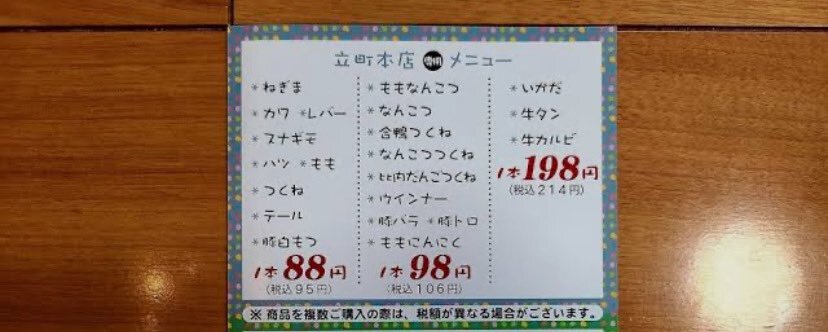 立町本店 専用 メニュー
*ねぎま
*カワ *レバー
*スナギモ
*ハツ *もも
*つくね
*テール
*豚白もつ
1本88円
(税込95円)
*ももなんこつ
*なんこつ
*合鴨つくね
*なんこつつくね
*比内たんごつくね
*ウインナー
*豚バラ *豚トロ
*ももにんにく
1本98円
(税込106円)
*いかだ
*牛タン
*牛カルビ
1本198円
(税込214円)
※ 商品を複数ご購入の際は、税額が異なる場合がございます。